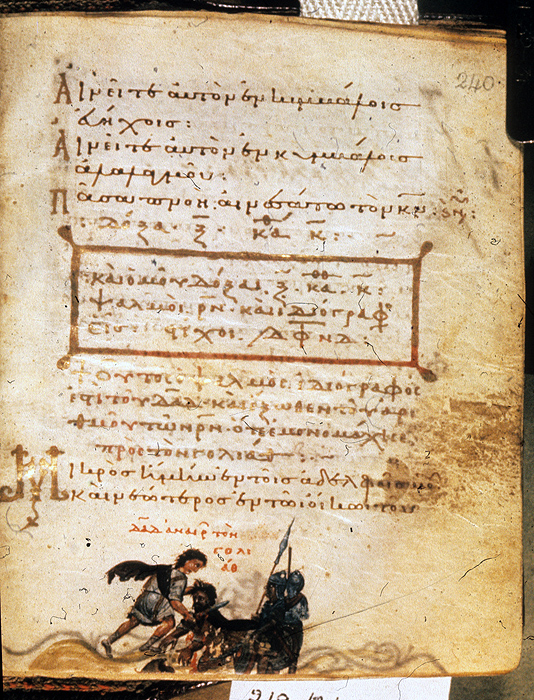 240
Αἰνεῖτε αὐτὸν ἐν κυμβάλοις
εὐήχοις:
Αἰνεῖτε αὐτὸν ἐν κυμβάλοις
ἀλαλαγμοῦ:
Πᾶσα πνοὴ αἰνεσάτω τὸν κν:
δόξα. ξ. κα. κ:
καὶ ὁμοῦ δόξαι. ξ. κα. κ:
Ψαλμοὶ ρν. καὶ ἰδιόγραφ
εἷς στίχοι. ͵δφνδ:
Οὗτος ὁ ψαλμὸς ἰδιόγραφος
τοῦ δαδ καὶ ἔξωθεν τοῦ ἀρι
θμοῦ τῶν ρν. ὅτε ἐμονομάχησε
πρὸς τὸν γολιάθ:
Μικρὸς ἤμην ἐν τοῖς ἀδελφοῖς μου
καὶ νεώτερος ἐν τῶ οἴκω τοῦ
δαδ ἀναιρ τὸν
γολι
άθ